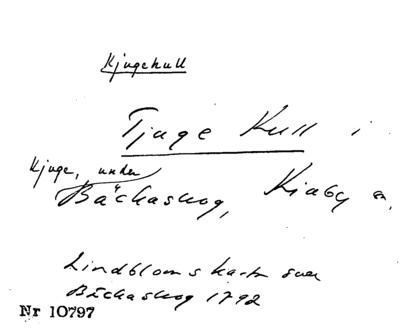 Kjugekull
Tjuge Kull i
Kjuge, under
Bäckaskog, Kiaby sn.
Lindbloms karta över
Bäckaskog 1792
Nr 10797